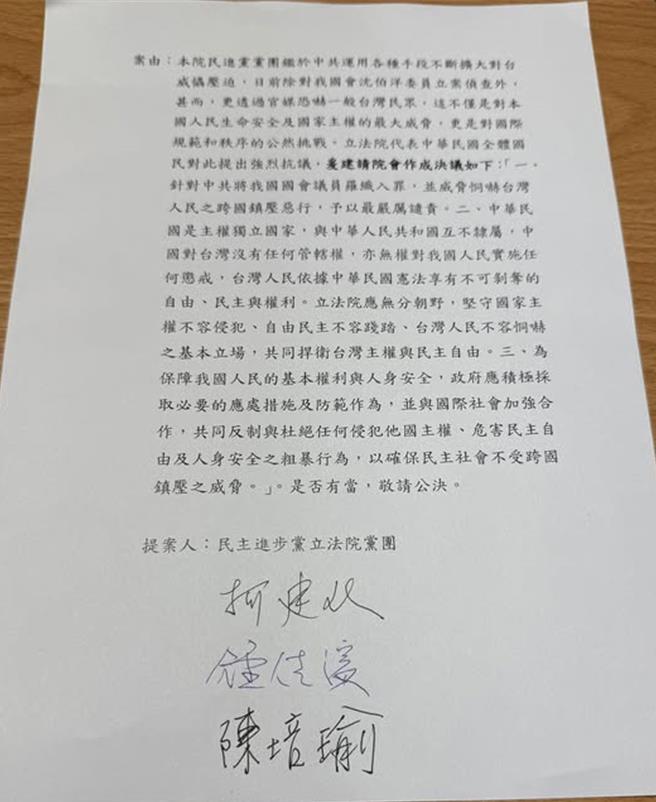 案由：本院民進黨黨團鑑於中共運用各種手段不斷擴大對台
威懾壓迫，目前除對我國會沈伯洋委員立案偵查外，
甚而，更透過官媒恐嚇一般台灣民眾，這不僅是對本
國人民生命安全及國家主權的最大威脅，更是對國際
規範和秩序的公然挑戰。立法院代表中華民國全體國
民對此提出強烈抗議，爰建請院會作成決議如下：「一、
針對中共將我國國會議員羅織入罪，並威脅恫嚇台灣
人民之跨國鎮壓惡行，予以最嚴厲譴責。二、中華民
國是主權獨立國家，與中華人民共和國互不隸屬，中
國對台灣沒有任何管轄權，亦無權對我國人民實施任
何懲戒，台灣人民依據中華民國憲法享有不可剝奪的
自由、民主與權利。立法院應無分朝野，堅守國家主
權不容侵犯、自由民主不容踐踏、台灣人民不容恫嚇
之基本立場，共同捍衛台灣主權與民主自由。三、為
保障我國人民的基本權利與人身安全，政府應積極採
取必要的應處措施及防範作為，並與國際社會加強合
作，共同反制與杜絕任何侵犯他國主權、危害民主自
由及人身安全之粗暴行為，以確保民主社會不受跨國
鎮壓之威脅。」。是否有當，敬請公決。
提案人：民主進步黨立法院黨團
柯建銘
鍾佳濱
陳培瑜